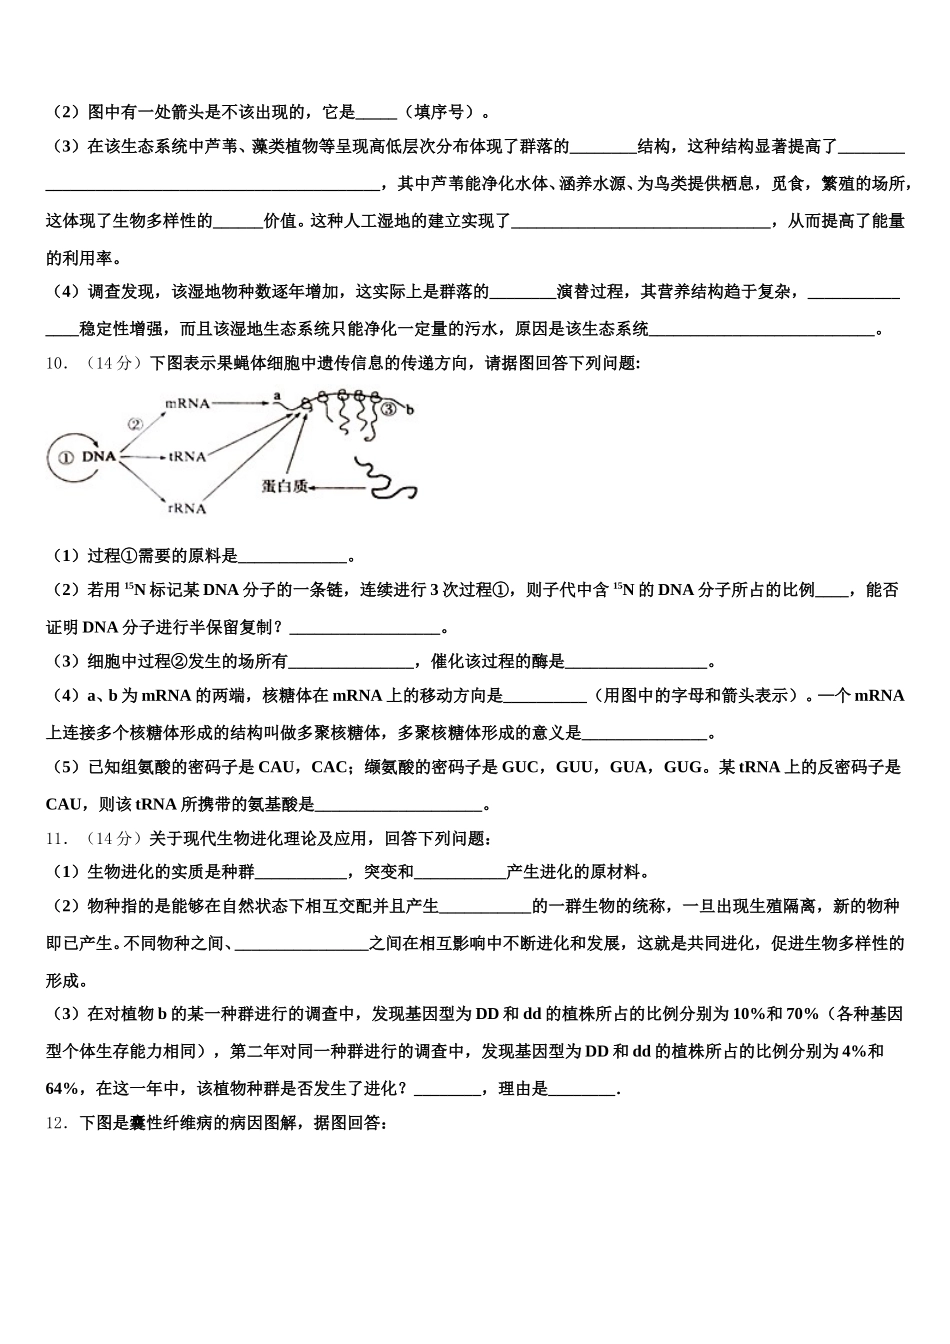 （2）图中有一处箭头是不该出现的，它是_____（填序号）。
（3）在该生态系统中芦苇、藻类植物等呈现高低层次分布体现了群落的________结构，这种结构显著提高了________
________________________________________，其中芦苇能净化水体、涵养水源、为鸟类提供栖息，觅食，繁殖的场所，
这体现了生物多样性的______价值。这种人工湿地的建立实现了_______________________________，从而提高了能量
的利用率。
（4）调查发现，该湿地物种数逐年增加，这实际上是群落的________演替过程，其营养结构趋于复杂，___________
____稳定性增强，而且该湿地生态系统只能净化一定量的污水，原因是该生态系统___________________________。
10．（14 分）下图表示果蝇体细胞中遗传信息的传递方向，请据图回答下列问题:
mRNA
a
③
b
②
① DNA
tRNA
蛋白质
rRNA
（1）过程①需要的原料是_____________。
（2）若用 15N 标记某 DNA 分子的一条链，连续进行 3 次过程①，则子代中含 15N 的 DNA 分子所占的比例____，能否
证明 DNA 分子进行半保留复制？__________________。
（3）细胞中过程②发生的场所有_______________，催化该过程的酶是_________________。
（4）a、b 为 mRNA 的两端，核糖体在 mRNA 上的移动方向是__________（用图中的字母和箭头表示）。一个 mRNA
上连接多个核糖体形成的结构叫做多聚核糖体，多聚核糖体形成的意义是_______________。
（5）已知组氨酸的密码子是 CAU，CAC；缬氨酸的密码子是 GUC，GUU，GUA，GUG。某 tRNA 上的反密码子是
CAU，则该 tRNA 所携带的氨基酸是____________________。
11．（14 分）关于现代生物进化理论及应用，回答下列问题：
（1）生物进化的实质是种群___________，突变和___________产生进化的原材料。
（2）物种指的是能够在自然状态下相互交配并且产生___________的一群生物的统称，一旦出现生殖隔离，新的物种
即已产生。不同物种之间、________________之间在相互影响中不断进化和发展，这就是共同进化，促进生物多样性的
形成。
（3）在对植物 b 的某一种群进行的调查中，发现基因型为 DD 和 dd 的植株所占的比例分别为 10%和 70%（各种基因
型个体生存能力相同），第二年对同一种群进行的调查中，发现基因型为 DD 和 dd 的植株所占的比例分别为 4%和
64%，在这一年中，该植物种群是否发生了进化？________，理由是________．
12．下图是囊性纤维病的病因图解，据图回答：